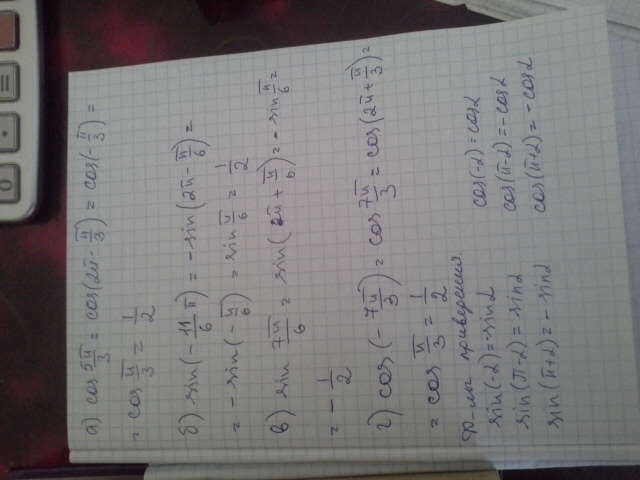 а) cos 5π/3 = cos(2π - π/3) = cos(-π/3) =
= cos π/3 = 1/2
б) sin(-11π/6) = -sin(2π - π/6) =
= -sin(-π/6) = sin π/6 = 1/2
в) sin 7π/6 = sin(π + π/6) = -sin π/6 =
= -1/2
г) cos(-7π/3) = cos 7π/3 = cos(2π + π/3) =
= cos π/3 = 1/2
ф-лы приведения
sin(-α) = -sinα cos(-α) = cosα
sin(π-α) = sinα cos(π-α) = -cosα
sin(π+α) = -sinα cos(π+α) = -cosα
0 . =